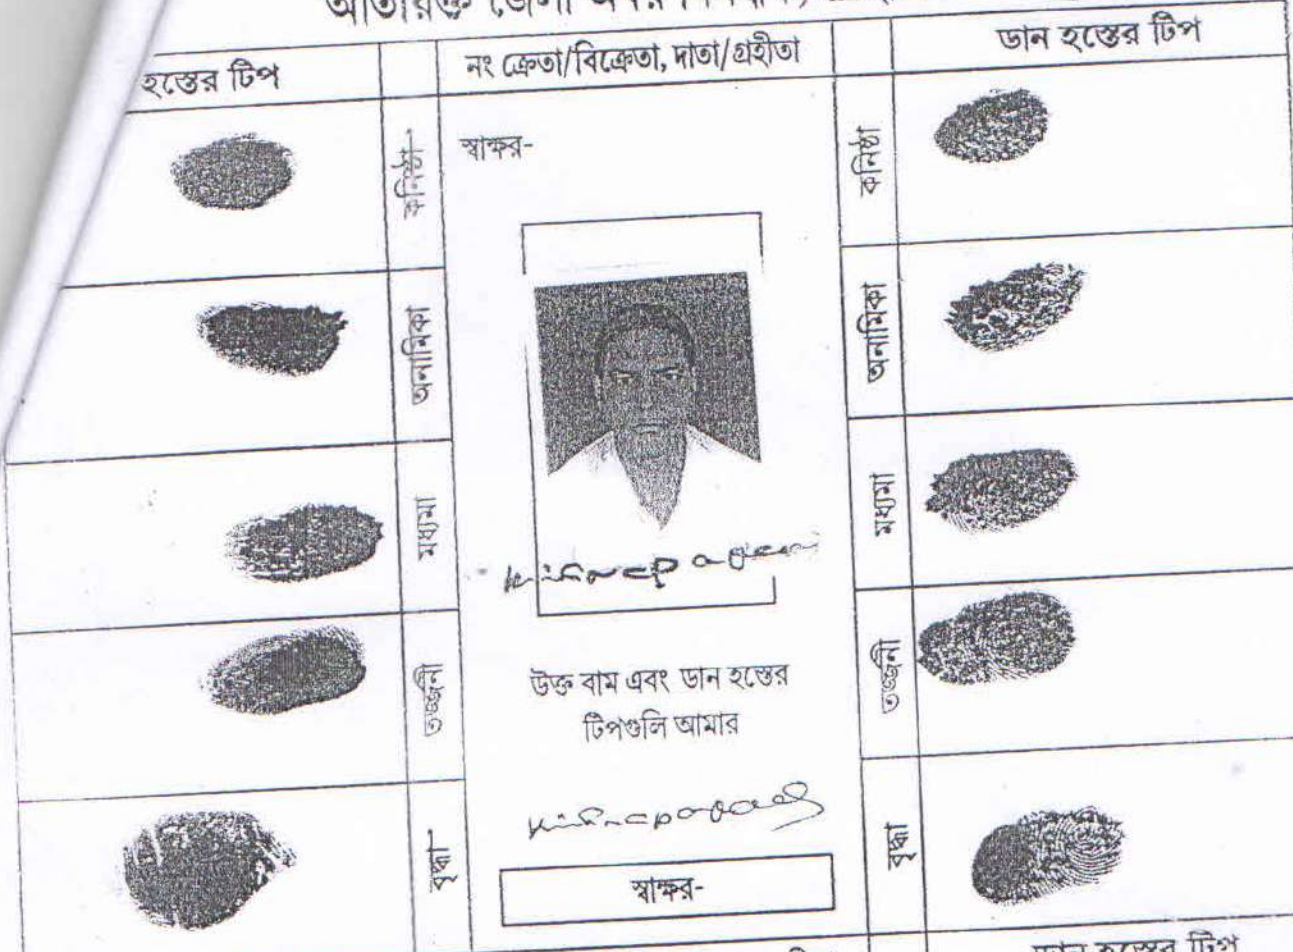 অতিরিক্ত জেলা
হস্তের টিপ
নং ক্রেতা/বিক্রেতা, দাতা/গ্রহীতা
ডান হস্তের টিপ
কনিষ্ঠা
স্বাক্ষর-
কনিষ্ঠা
অনামিকা
অনামিকা
মধ্যমা
মধ্যমা
তর্জ্জনী
উক্ত বাম এবং ডান হস্তের
টিপগুলি আমার
তর্জ্জনী
বৃদ্ধা
স্বাক্ষর-
বৃদ্ধা
ডান হস্তের টিপ